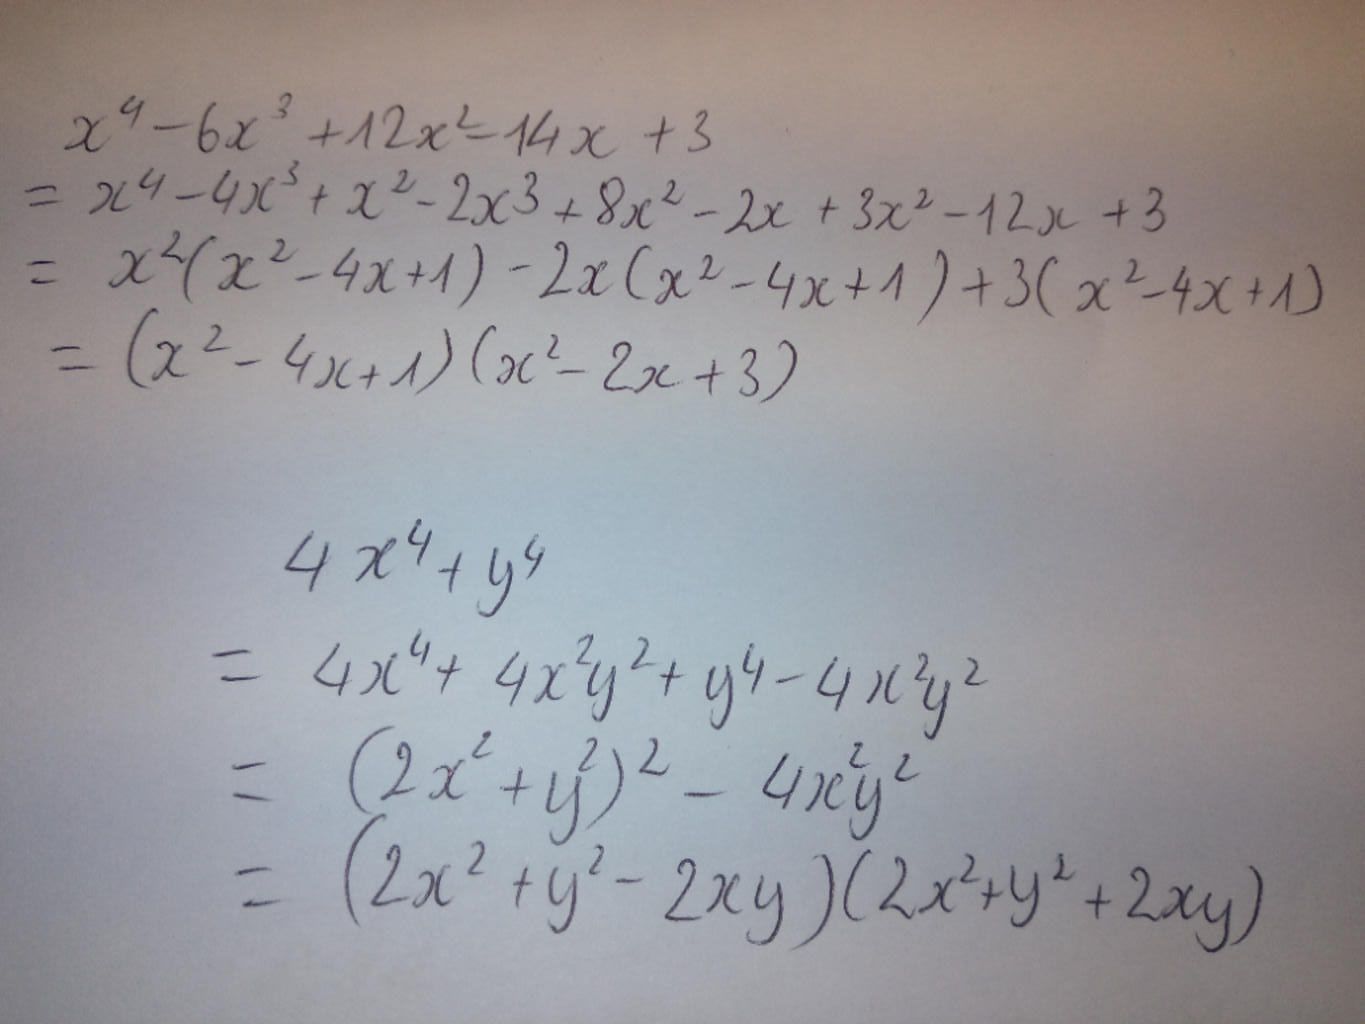 x⁴ - 6x³ + 12x² - 14x + 3
= x⁴ - 4x³ + x² - 2x³ + 8x² - 2x + 3x² - 12x + 3
= x²(x² - 4x + 1) - 2x(x² - 4x + 1) + 3(x² - 4x + 1)
= (x² - 4x + 1)(x² - 2x + 3)
4x⁴ + y⁴
= 4x⁴ + 4x²y² + y⁴ - 4x²y²
= (2x² + y²)² - 4x²y²
= (2x² + y² - 2xy)(2x² + y² + 2xy)